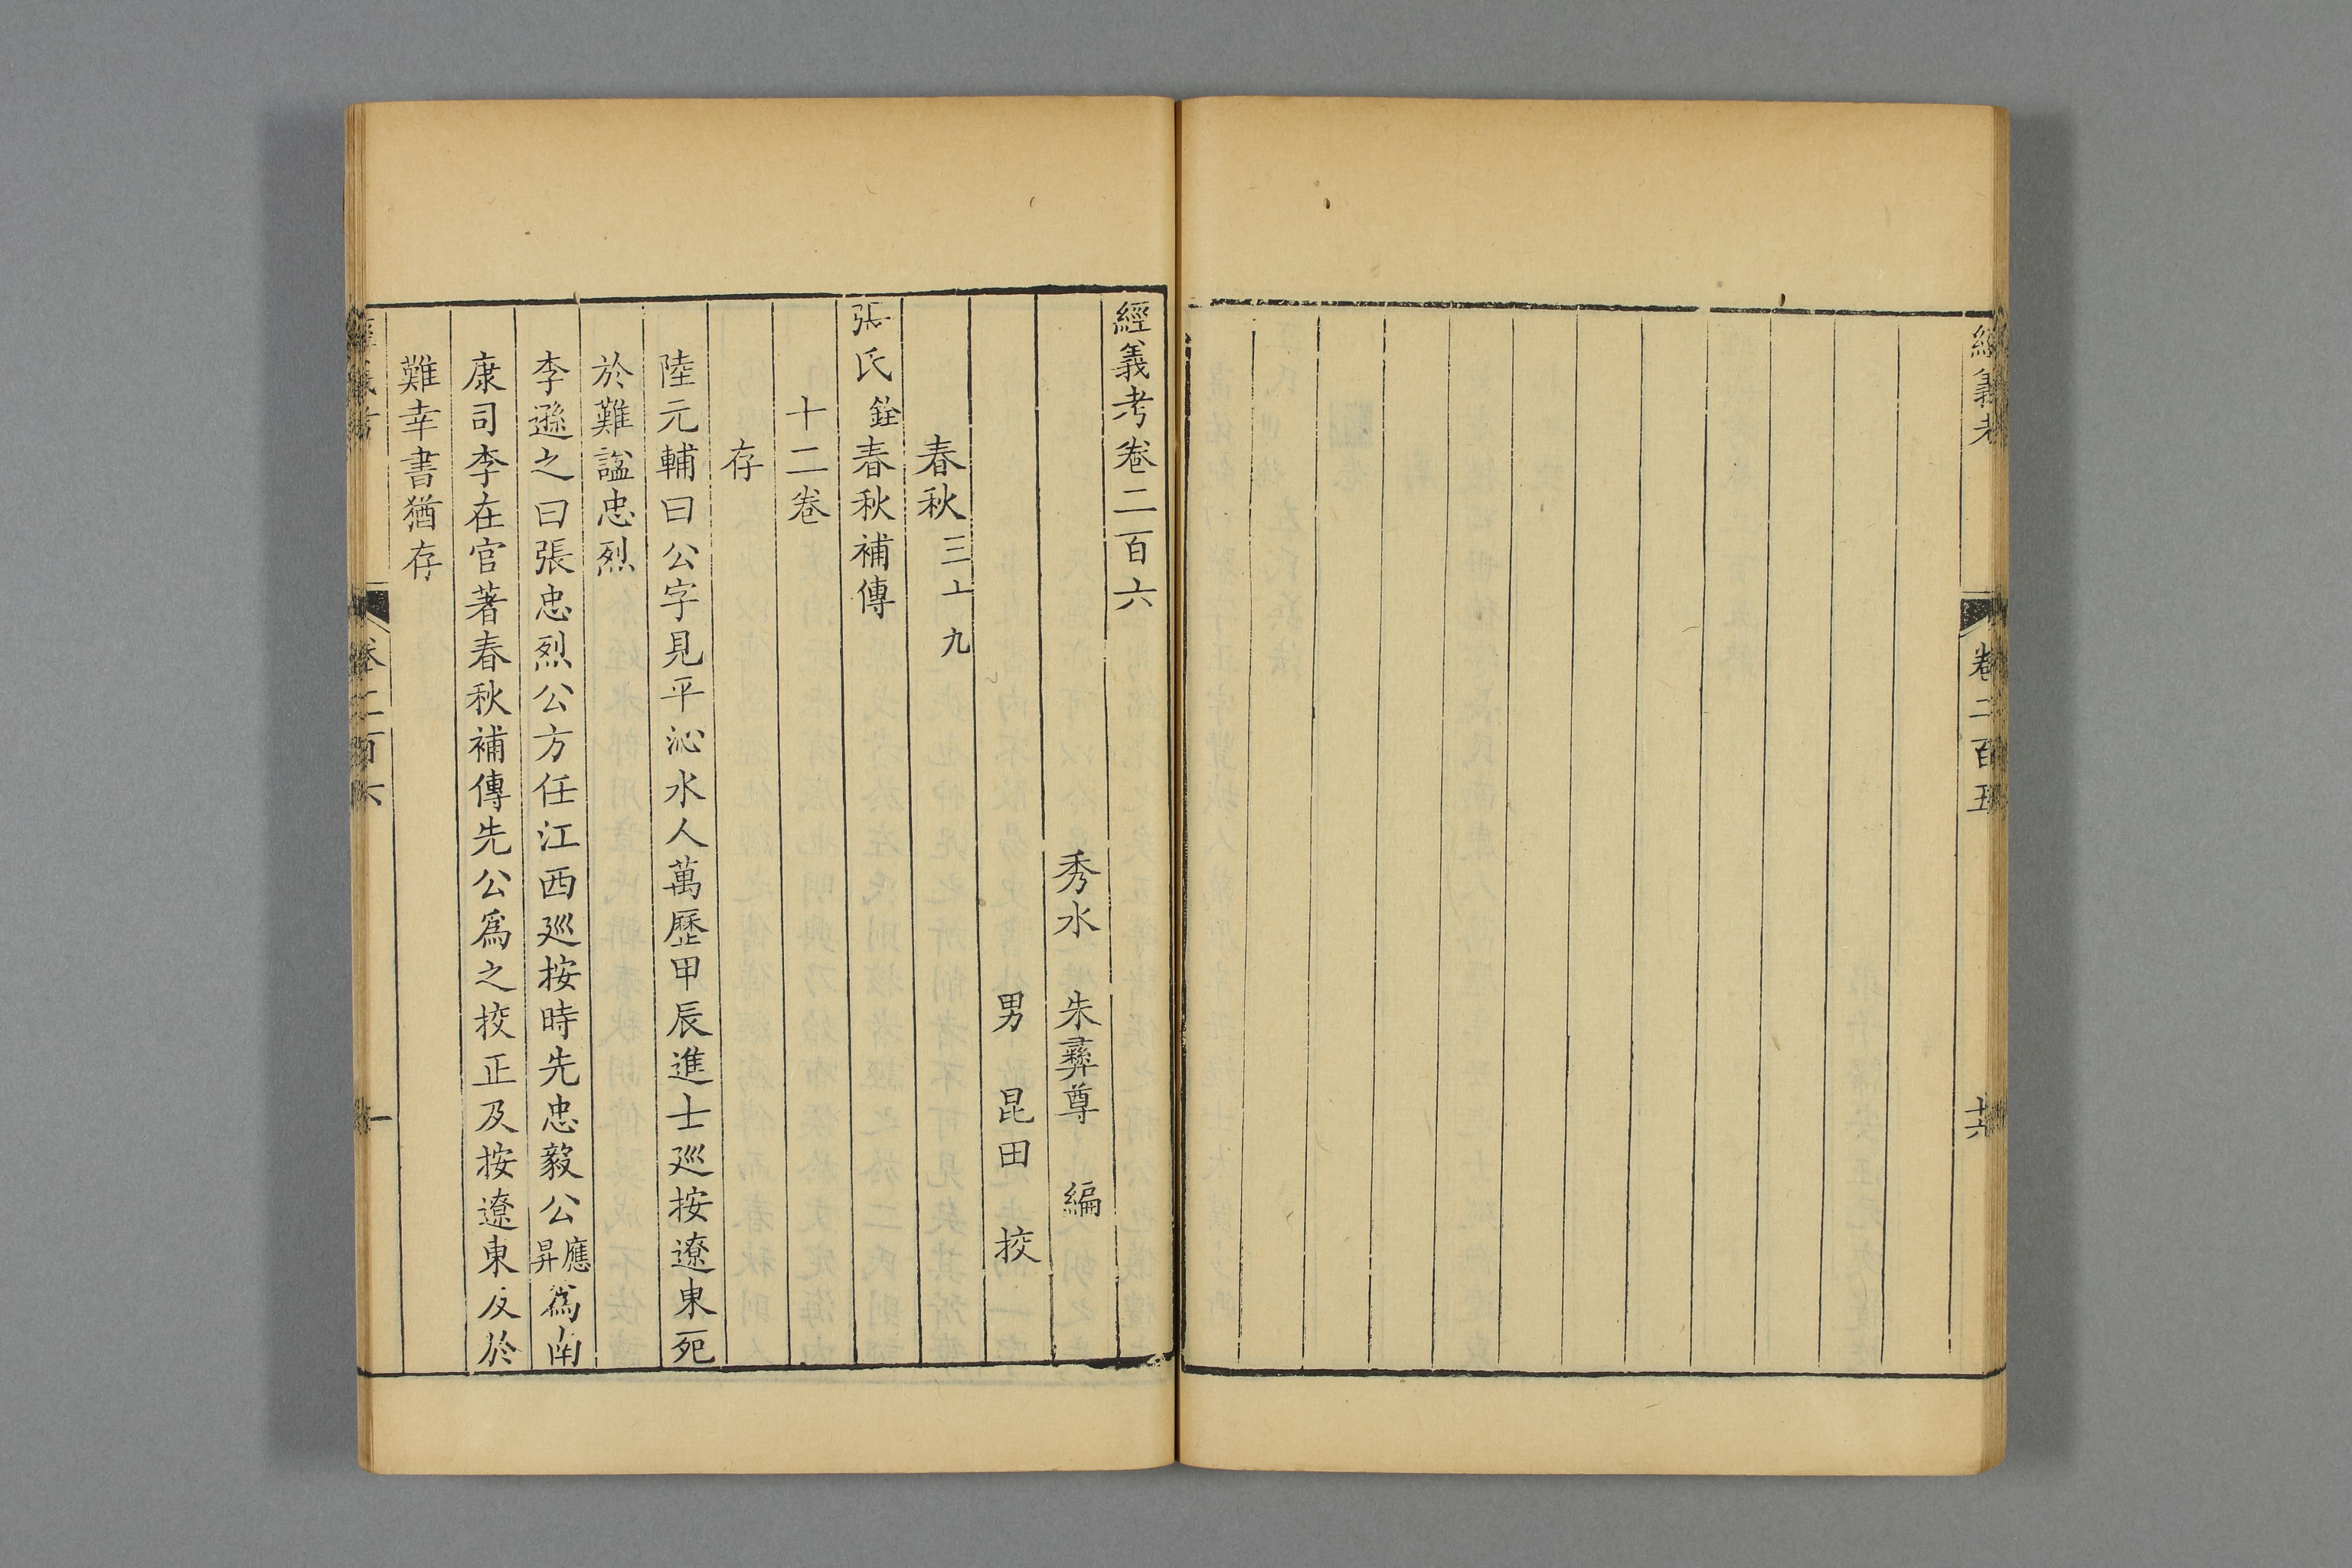 經義考
卷二百五
十六
經義考卷二百六
秀水 朱彝尊 編
男 昆田 挍
春秋三十九
張氏銓春秋補傳
十二卷
存
陸元輔曰公字見平沁水人萬歷甲辰進士巡按遼東死
於難諡忠烈
李遜之曰張忠烈公方任江西巡按時先忠毅公應昇爲南
康司李在官著春秋補傳先公爲之挍正及按遼東及於
難幸書猶存
經義考
卷二百六
一